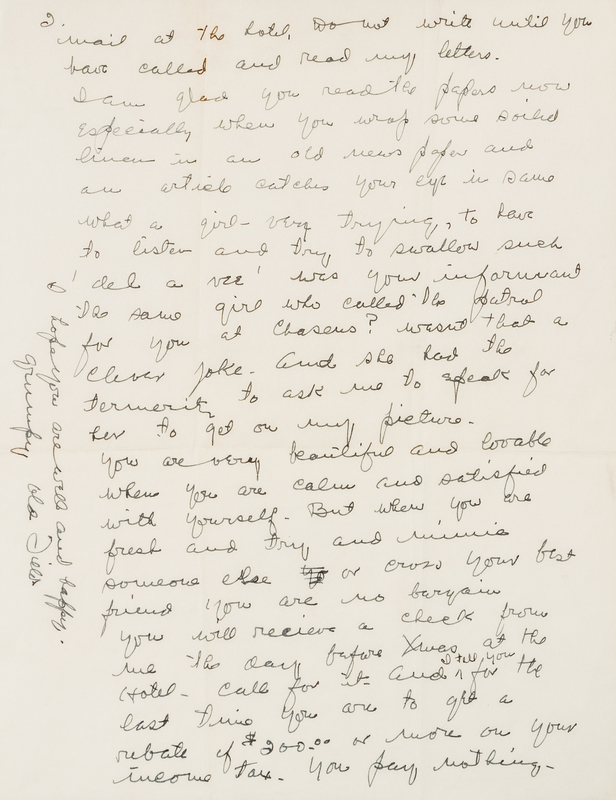 2.
mail at the hotel. Do not write until you
have called and read my letters.
I am glad you read the papers now
especially when you wrap some soiled
linen in an old news paper and
an article catches your eye in same
what a girl - very trying, to have
to listen and try to swallow such
'del a vee' was your informant
the same girl who called the patrol
for you at Chasens? wasnt that a
clever joke. And she had the
termerity to ask me to speak for
her to get on my picture.
You are very beautiful and lovable
when you are calm and satisfied
with yourself. But when you are
fresh and try and mimic
someone else or cross your best
friend you are no bargain
You will recieve a check from
me the day before Xmas at the
Hotel - call for it and I tell you for the
last time you are to get a
rebate of $200.00 or more on your
income tax. You pay nothing -
I hope you are well and happy.
Grumpy old Fields